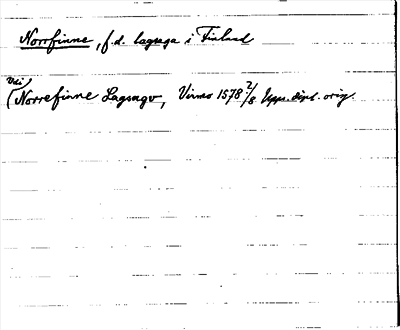 Norrfinne, f.d. lagsaga i Finland
(Vdi Norrefinne Lagsagv, Virmo 1578 2/8 Upps. dipl. orig.